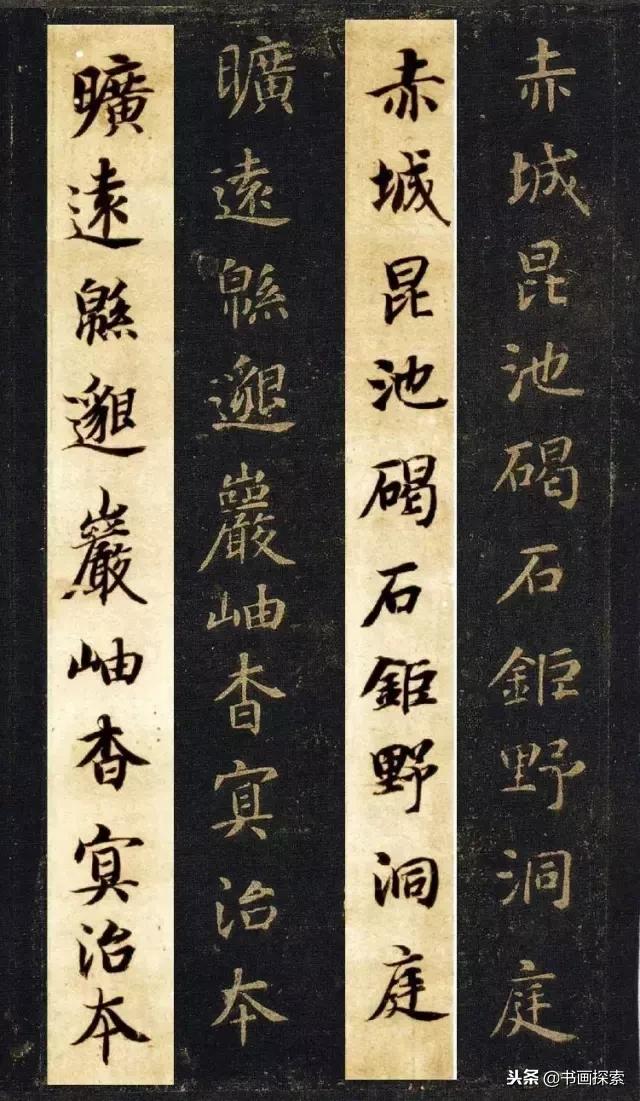 赤城昆池碣石鉅野洞庭
赤城昆池碣石鉅野洞庭
曠遠緜邈巖岫杳冥治本
曠遠緜邈巖岫杳冥治本
头条 @书画探索